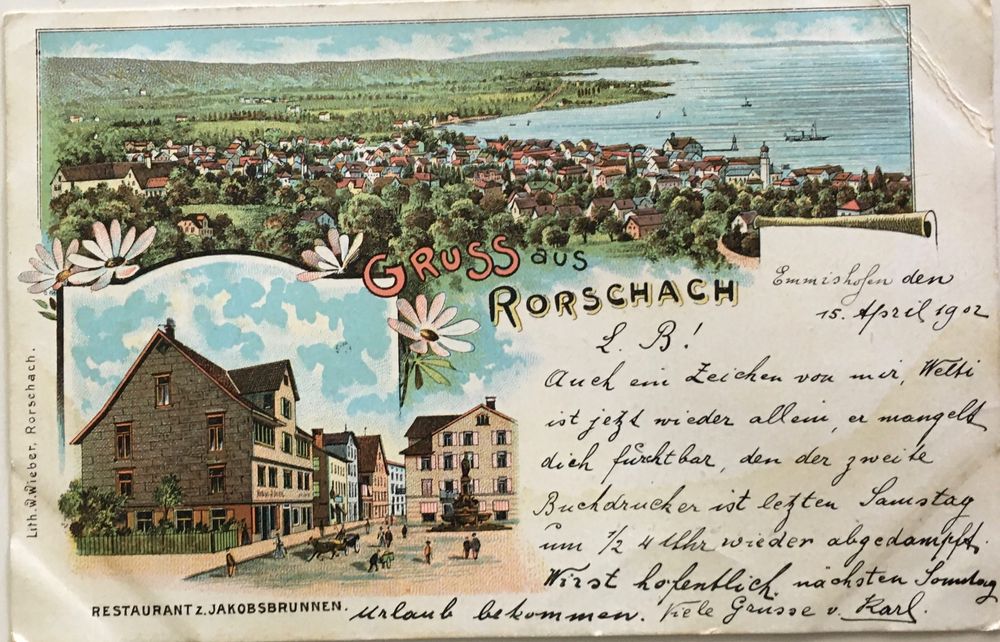 GRUSS aus
RORSCHACH
Emmishofen den
15. April 1902
L. B!
Auch ein Zeichen von mir, Welti
ist jetzt wieder allein, er mangelt
dich furchtbar, den der zweite
Buchdrucker ist letzten Samstag
um 1/2 4 Uhr wieder abgedampft.
Wirst hofentlich nächsten Sonntag
Urlaub bekommen. Viele Grüsse v. Karl.
RESTAURANT z. JAKOBSBRUNNEN.
Lith. v. W. Wieber, Rorschach.